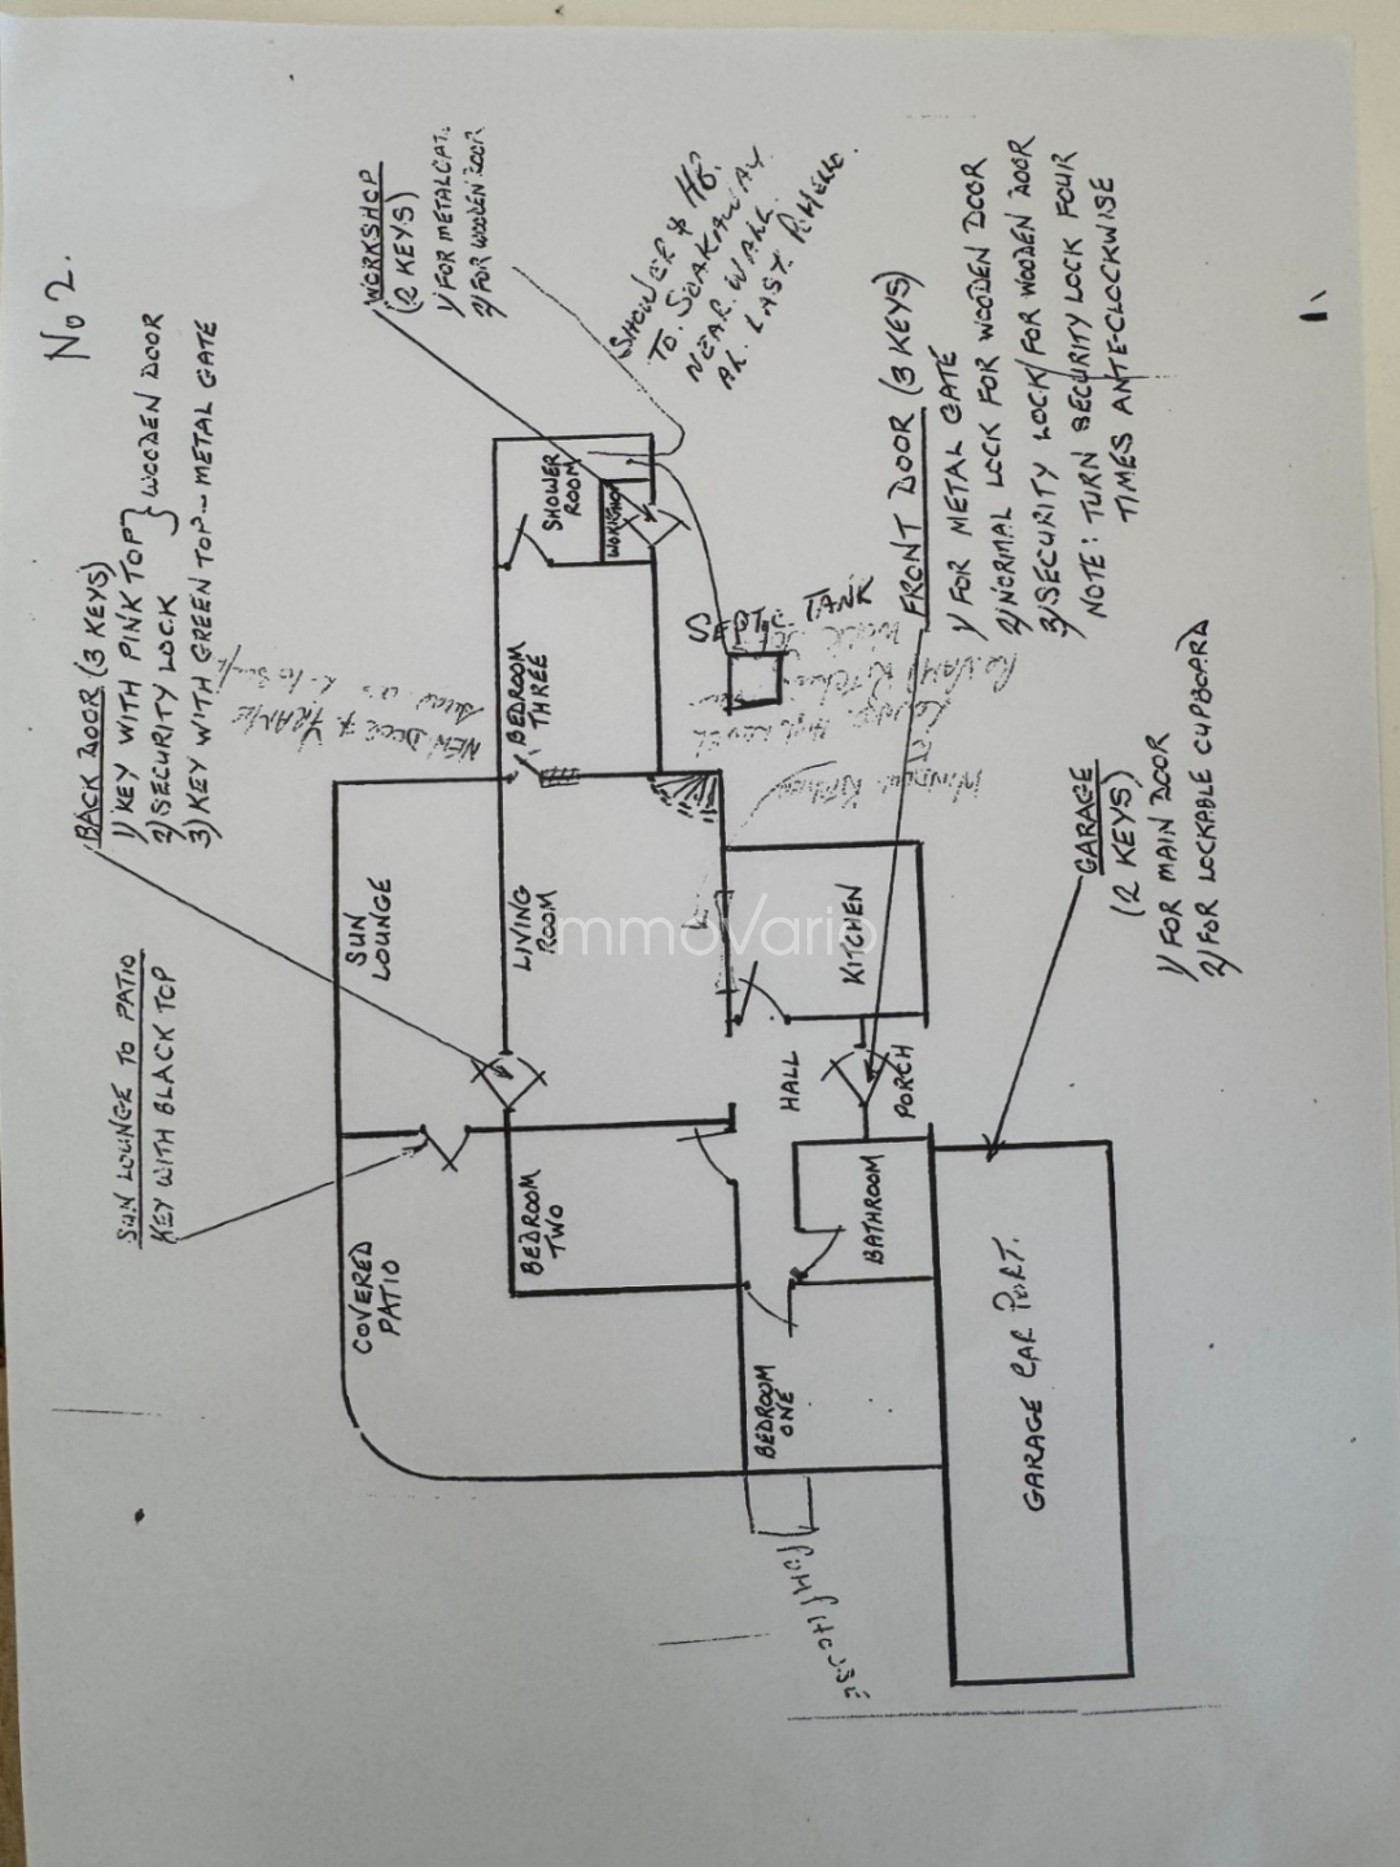 No 2.
BACK DOOR (3 KEYS)
1) KEY WITH PINK TOP } WOODEN DOOR
2) SECURITY LOCK
3) KEY WITH GREEN TOP - METAL GATE
SUN LOUNGE TO PATIO
KEY WITH BLACK TOP
WORKSHOP
(2 KEYS)
1) FOR METAL GAT.
2) FOR WOODEN DOOR
SHOWER &
TO. SOAKAWAY
NEAR. WALL.
LAST.
NEW DOOR & FRAME
COVERED
PATIO
SUN
LOUNGE
BEDROOM
TWO
LIVING
ROOM
BEDROOM
THREE
SHOWER
ROOM
WORKSHOP
SEPTIC TANK
KITCHEN
HALL
PORCH
BATHROOM
BEDROOM
ONE
GARAGE CAR PORT.
FRONT DOOR (3 KEYS)
1) FOR METAL GATE
2) NORMAL LOCK FOR WOODEN DOOR
3) SECURITY LOCK FOR WOODEN DOOR
NOTE: TURN SECURITY LOCK FOUR
TIMES ANTE-CLOCKWISE
GARAGE
(2 KEYS)
1) FOR MAIN DOOR
2) FOR LOCKABLE CUPBOARD
immovario